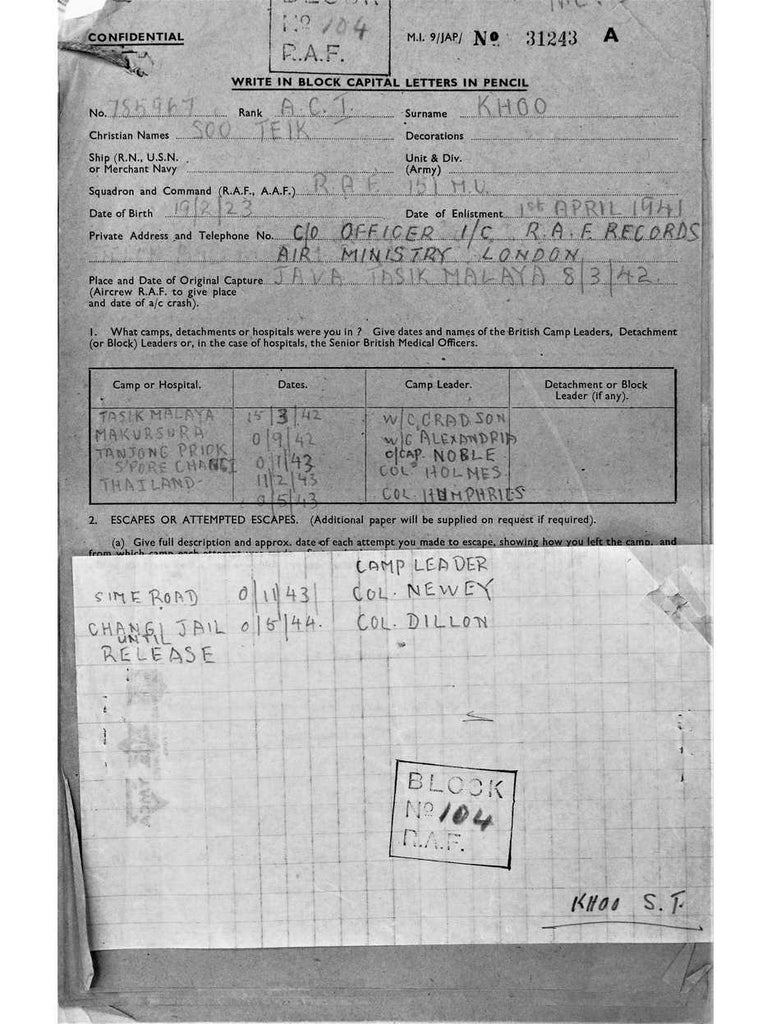 BLOCK
Nº 104
R.A.F.
CONFIDENTIAL
M.I. 9/JAP/ Nº 31243 A
WRITE IN BLOCK CAPITAL LETTERS IN PENCIL
No. 785967 Rank A.C.1. Surname KHOO
Christian Names SOO TEIK Decorations
Ship (R.N., U.S.N. or Merchant Navy Unit & Div. (Army)
Squadron and Command (R.A.F., A.A.F.) R A F 151 M.U.
Date of Birth 19/2/23 Date of Enlistment 1st APRIL 1941
Private Address and Telephone No. C/O OFFICER I/C R.A.F. RECORDS
AIR MINISTRY LONDON
Place and Date of Original Capture JAVA TASIK MALAYA 8/3/42.
(Aircrew R.A.F. to give place
and date of a/c crash).
1. What camps, detachments or hospitals were you in ? Give dates and names of the British Camp Leaders, Detachment
(or Block) Leaders or, in the case of hospitals, the Senior British Medical Officers.
Camp or Hospital. Dates. Camp Leader. Detachment or Block Leader (if any).
TASIK MALAYA 15/3/42 W/C CRADSON
MAKURSURA 0/9/42 W/C ALEXANDRIA
TANJONG PRIOK O/CAP. NOBLE
S'PORE CHANGI 0/1/43 COL. HOLMES
THAILAND 11/2/43
0/5/43 COL. HUMPHRIES
2. ESCAPES OR ATTEMPTED ESCAPES. (Additional paper will be supplied on request if required).
(a) Give full description and approx. date of each attempt you made to escape, showing how you left the camp, and
from which camp each attempt was made.
CAMP LEADER
SIME ROAD 0/11/43 COL. NEWEY
CHANGI JAIL 0/5/44. COL. DILLON
UNTIL
RELEASE
BLOCK
Nº 104
R.A.F.
KHOO S.T.